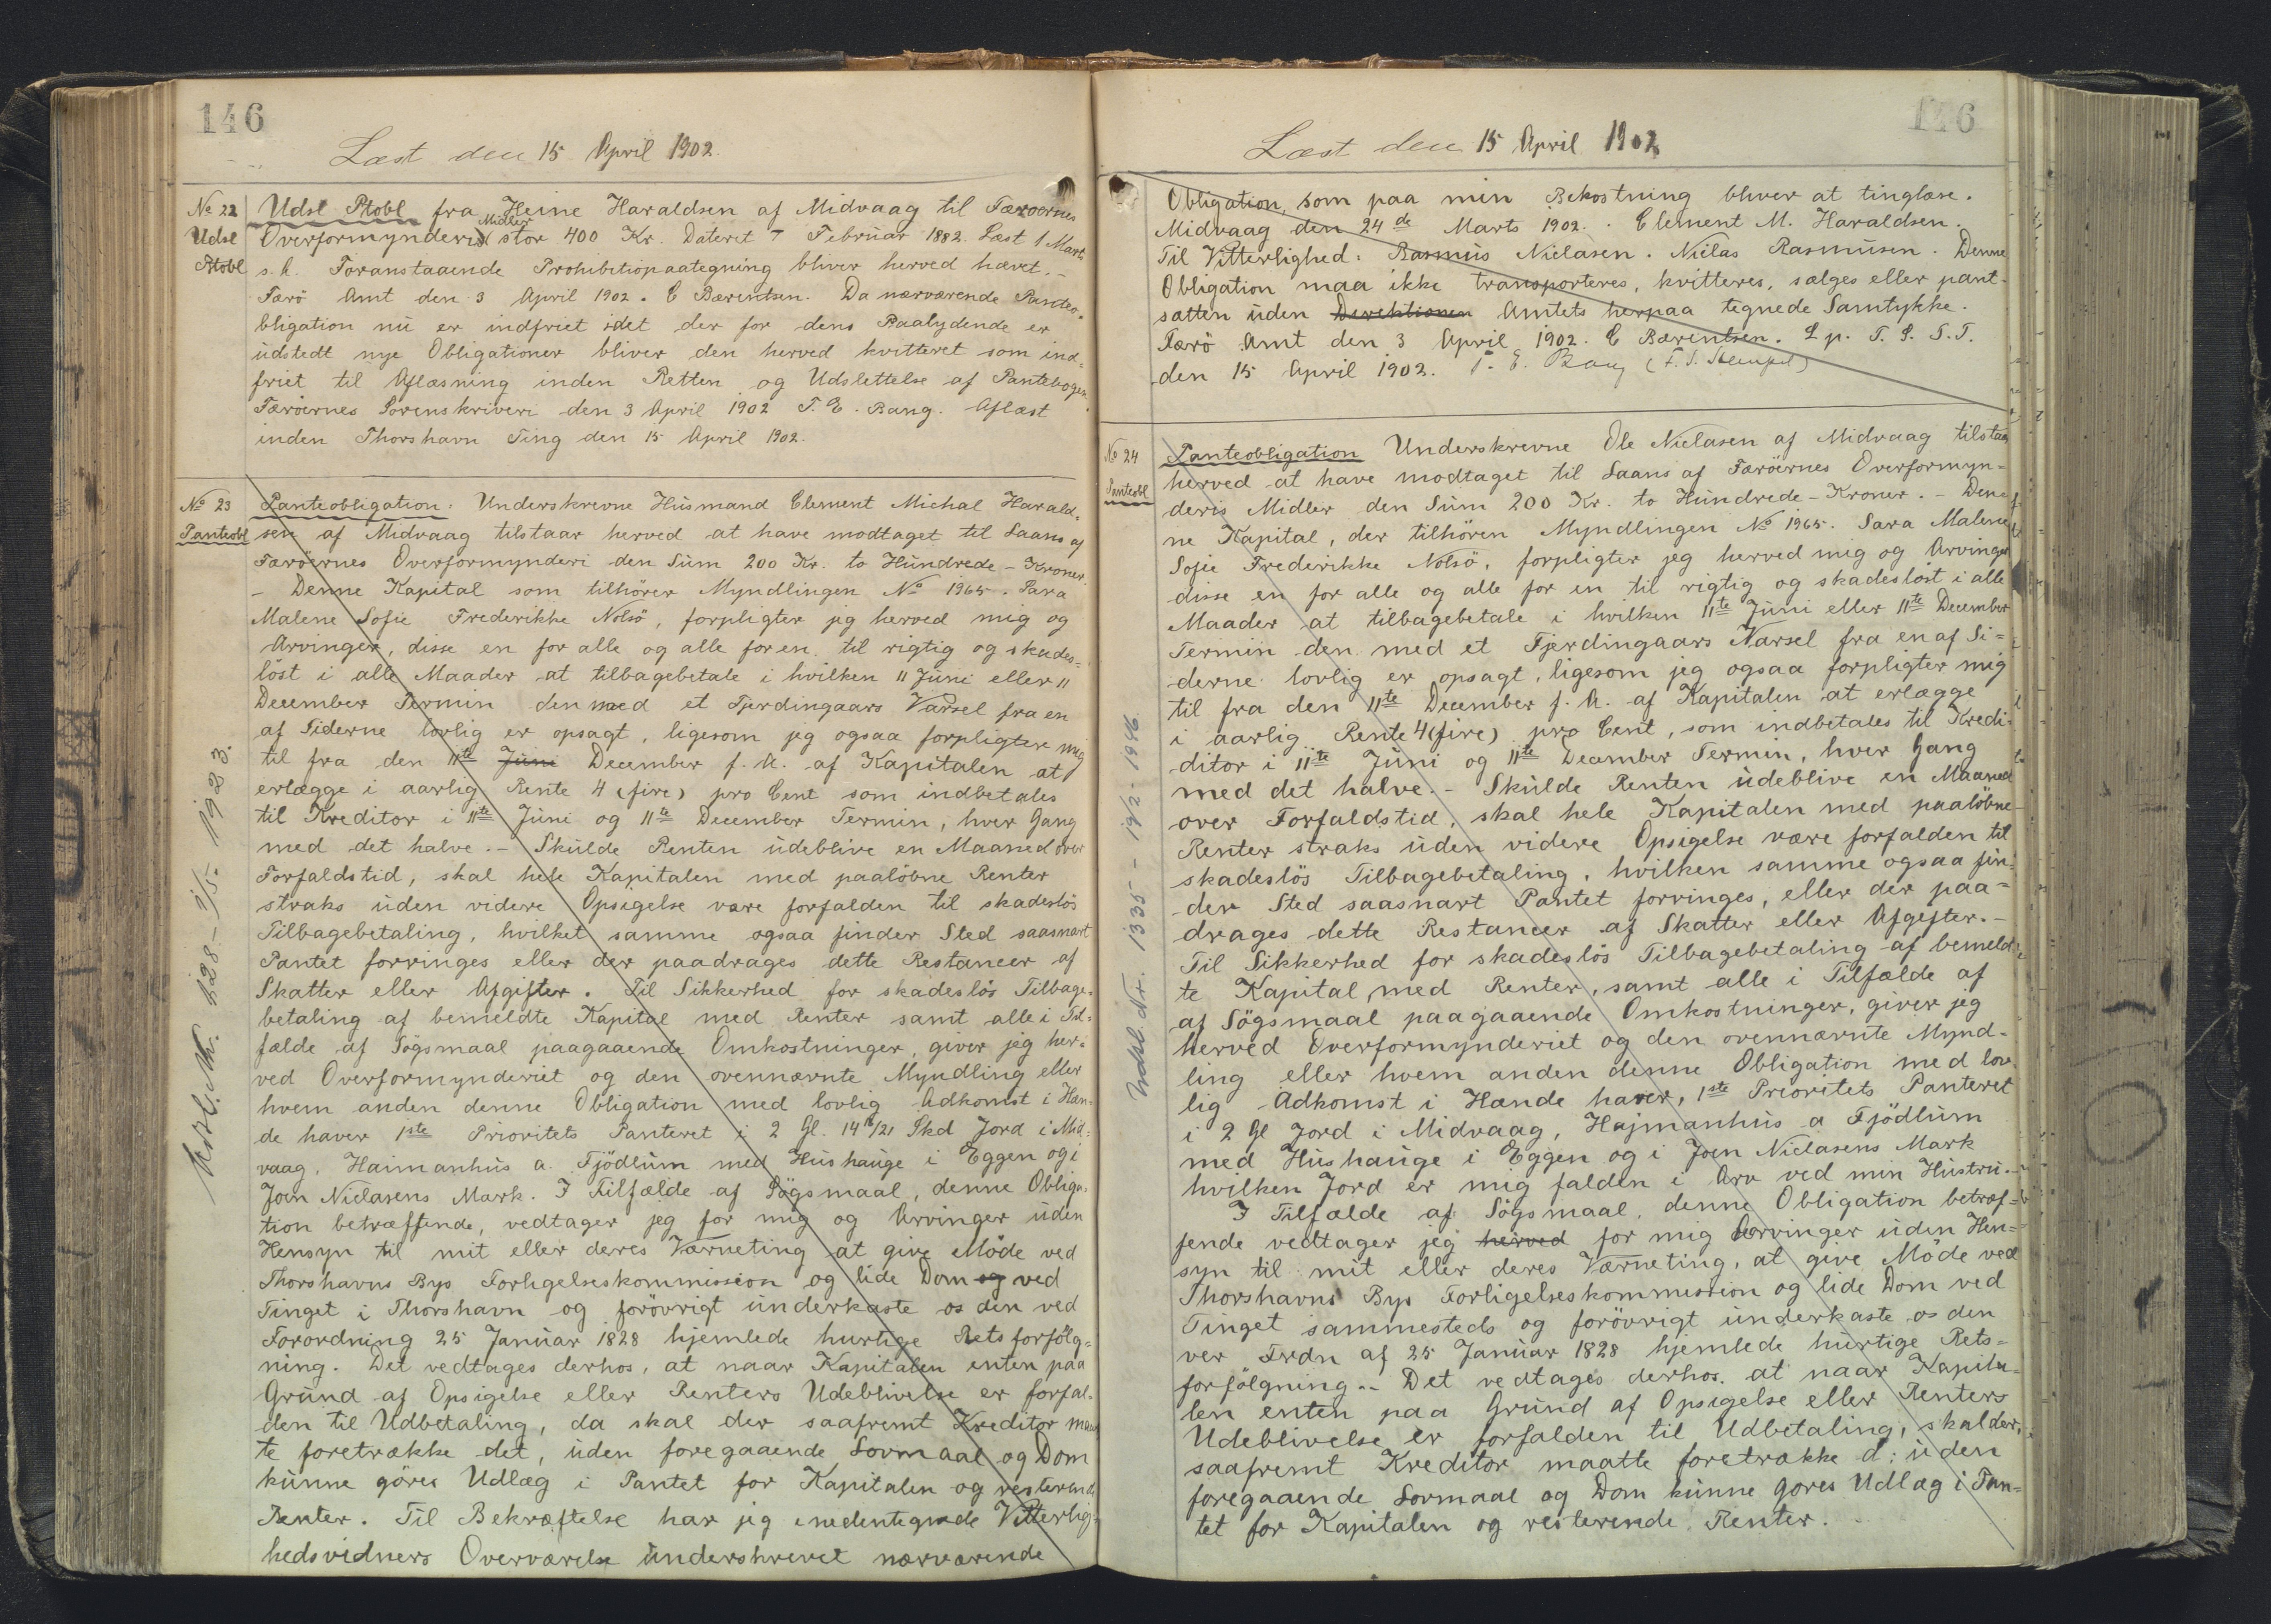 146
Læst den 15 April 1902.
No 22
Udsl
Ptobl
Udsl Ptobl fra Heine Haraldsen af Midvaag til Færoernes
Midler
Overformynderis stor 400 Kr. Dateret 7 Februar 1882. Læst 1 Marts
s. A. Foranstaaende Prohibitionpaategning bliver herved hævet. -
Færö Amt den 3 April 1902. C Bærentsen. Da nærværende Panteo-
bligation nu er indfriet idet der for dens Paalydende er
udstedt nye Obligationer bliver den herved kvitteret som ind-
friet til Aflæsning inden Retten og Udslettelse af Pantebogen.
Færöernes Sorenskriveri den 3 April 1902 T. E. Bang. Aflæst
inden Thorshavn Ting den 15 April 1902.
No 23
Panteobl
Panteobligation: Underskrevne Husmand Clement Michal Harald-
sen af Midvaag tilstaar herved at have modtaget til Laans af
Færöernes Overformynderi den Sum 200 Kr. to Hundrede - Kroner.
- Denne Kapital som tilhörer Myndlingen No 1965. Sara
Malene Sofie Frederikke Nolsö, forpligter jeg herved mig og
Arvinger, disse en for alle og alle for en til rigtig og skades-
löst i alle Maader at tilbagebetale i hvilken 11 Juni eller 11
December Termin den med et Fjerdingaars Varsel fra en
af Siderne lovlig er opsagt, ligesom jeg ogsaa forpligter mig
til fra den 11te Juni December f. A. af Kapitalen at
erlægge i aarlig Rente 4 (fire) pro Cent som indbetales
til Kreditor i 11te Juni og 11te December Termin, hver Gang
med det halve. - Skulde Renten udeblive en Maaned over
Forfaldstid, skal hele Kapitalen med paalöbne Renter
straks uden videre Opsigelse være forfalden til skadeslös
Tilbagebetaling, hvilket samme ogsaa finder Sted saasnart
Pantet forringes eller der paadrages dette Restancer af
Skatter eller Afgifter. Til Sikkerhed for skadeslös Tilbage-
betaling af bemeldte Kapital med Renter samt alle i Til-
fælde af Sögsmaal paagaaende Omkostninger, giver jeg her-
ved Overformynderiet og den ovennævnte Myndling eller
hvem anden denne Obligation med lovlig Adkomst i Hæn-
de haver 1ste Prioritets Panteret i 2 Gl. 14 16/21 Skd Jord i Mid-
vaag, Haimanhus a. Fjödlum med Hushauge i Eggen og i
Joen Niclasens Mark. I Tilfælde af Sögsmaal, denne Obliga-
tion betræffende, vedtager jeg for mig og Arvinger uden
Hensyn til mit eller deres Værneting at give Möde ved
Thorshavns Bys Forligelseskommission og lide Dom og ved
Tinget i Thorshavn og forövrigt underkaste os den ved
Forordning 25 Januar 1828 hjemlede hurtige Retsforfölg-
ning. Det vedtages derhos, at naar Kapitalen enten paa
Grund af Opsigelse eller Renters Udeblivelse er forfal-
den til Udbetaling, da skal der saafremt Kreditor maat
te foretrække det, uden foregaaende Lovmaal og Dom
kunne göres Udlæg i Pantet for Kapitalen og resterende
Renter. Til Bekræftelse har jeg i nedentegnede Vitterlig-
hedsvidners Overværelse underskrevet nærværende
146
Læst den 15 April 1902
Obligation, som paa min Bekostning bliver at tinglæse.
Midvaag den 24de Marts 1902. Clement M. Haraldsen.
Til Vitterlighed: Rasmus Niclasen. Niclas Rasmusen. Denne
Obligation maa ikke transporteres, kvitteres, sælges eller pant-
sætten uden Direktionen Amtets herpaa tegnede Samtykke.
Færö Amt den 3 April 1902. C Bærentsen. L p. T. S. S. T.
den 15 April 1902. T. E. Bang
No 24
Panteobl
Panteobligation Underskrevne Ole Niclasen af Midvaag tilstaa
herved at have modtaget til Laans af Færöernes Overformyn-
deris Midler den Sum 200 Kr. to Hundrede - Kroner. - Den-
ne Kapital, der tilhören Myndlingen No 1965. Sara Malene
Sofie Frederikke Nolsö, forpligter jeg herved mig og Arvinger
disse en for alle og alle for en til rigtig og skadeslöst i alle
Maader at tilbagebetale i hvilken 11te Juni eller 11te December
Termin den med et Fjerdingaars Varsel fra en af Si-
derne lovlig er opsagt, ligesom jeg ogsaa forpligter mig
til fra den 11te December f. A. af Kapitalen at erlægge
i aarlig Rente 4 (fire) pro Cent, som indbetales til Kredi-
ditor i 11te Juni og 11te December Termin, hver Gang
med det halve. - Skulde Renten udeblive en Maaned
over Forfaldstid, skal hele Kapitalen med paalöbne
Renter straks uden videre Opsigelse være forfalden til
skadeslös Tilbagebetaling, hvilken samme ogsaa fin-
der Sted saasnart Pantet forringes, eller der paa-
drages dette Restancer af Skatter eller Afgifter. -
Til Sikkerhed for skadeslös Tilbagebetaling af bemeld-
te Kapital med Renter, samt alle i Tilfælde af
af Sögsmaal paagaaende Omkostninger, giver jeg
herved Overformynderiet og den ovennævnte Mynd-
ling eller hvem anden denne Obligation med lov-
lig Adkomst i Hænde haver, 1ste Prioritets Panteret
i 2 Gl Jord i Midvaag, Hajmanhus a Fjödlum
med Hushauge i Eggen og i Joen Niclasens Mark
hvilken Jord er mig falden i Arv ved min Hustru. -
I Tilfælde af Sögsmaal, denne Obligation betræf-
fende vedtager jeg herved for mig Arvinger uden Hen-
syn til mit eller deres Værneting, at give Möde ved
Thorshavns Bys Forligelseskommission og lide Dom ved
Tinget sammesteds og forövrigt underkaste os den
ver Frdn af 25 Januar 1828 hjemlede hurtige Rets-
forfölgning. - Det vedtages derhos, at naar Kapita-
len enten paa Grund af Opsigelse eller Renters
Udeblivelse er forfalden til Udbetaling, skal der,
saafremt Kreditor maatte foretrække d: uden
foregaaende Lovmaal og Dom kunne göres Udlæg i Pan-
tet for Kapitalen og resterende Renter.
Udsl. Nr. 1335 - 19/2 - 1946.